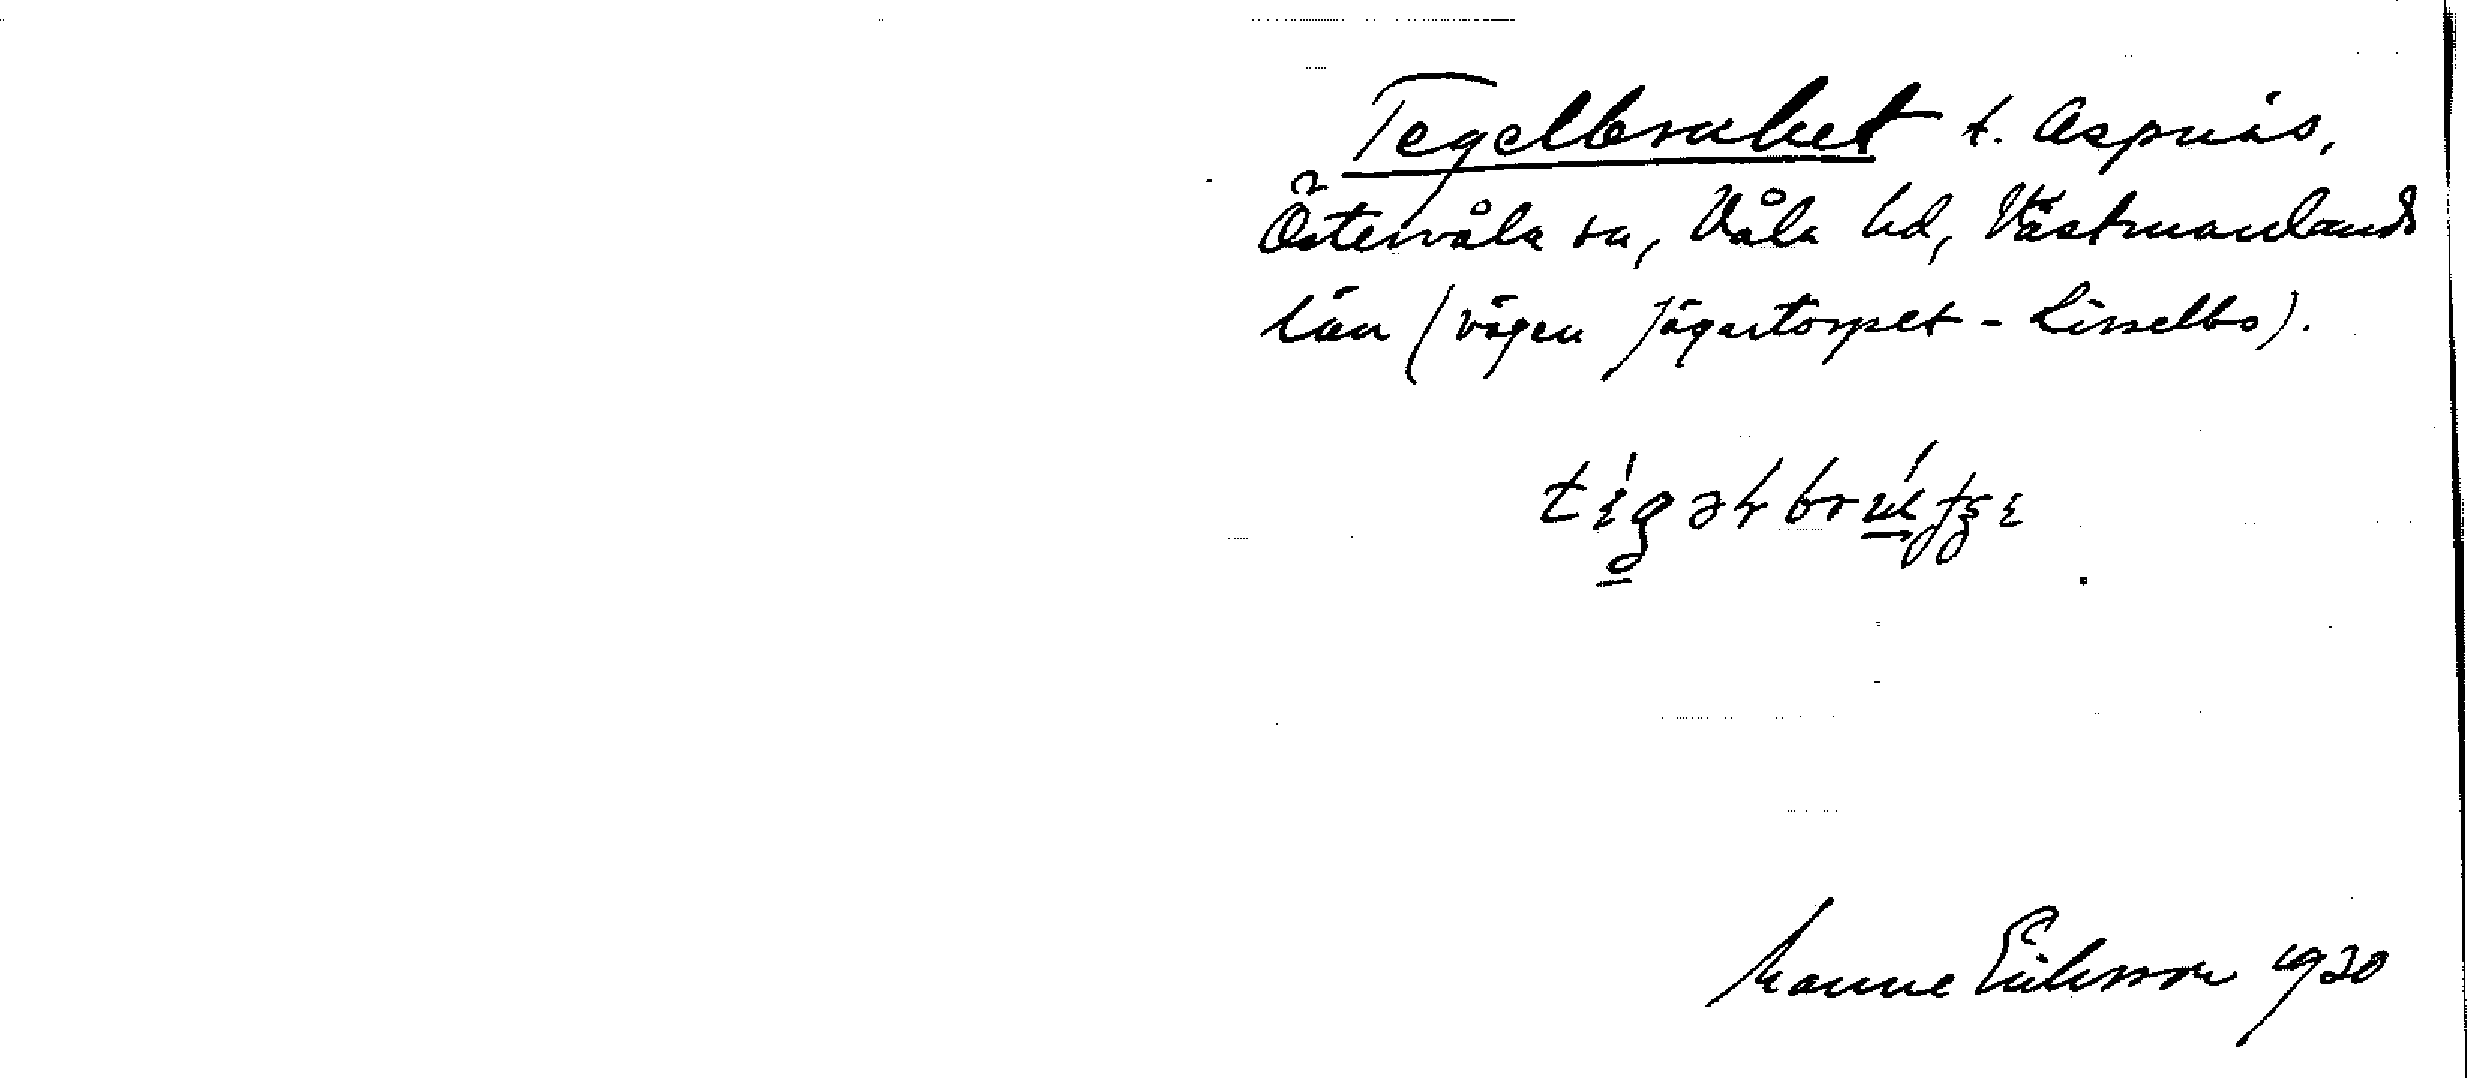 Tegelbruket t. Aspnäs,
Östervåla sn, Våla hd, Västmanlands
län (vägen Jägartorpet - Lisselbo).
Manne Eriksson 1930